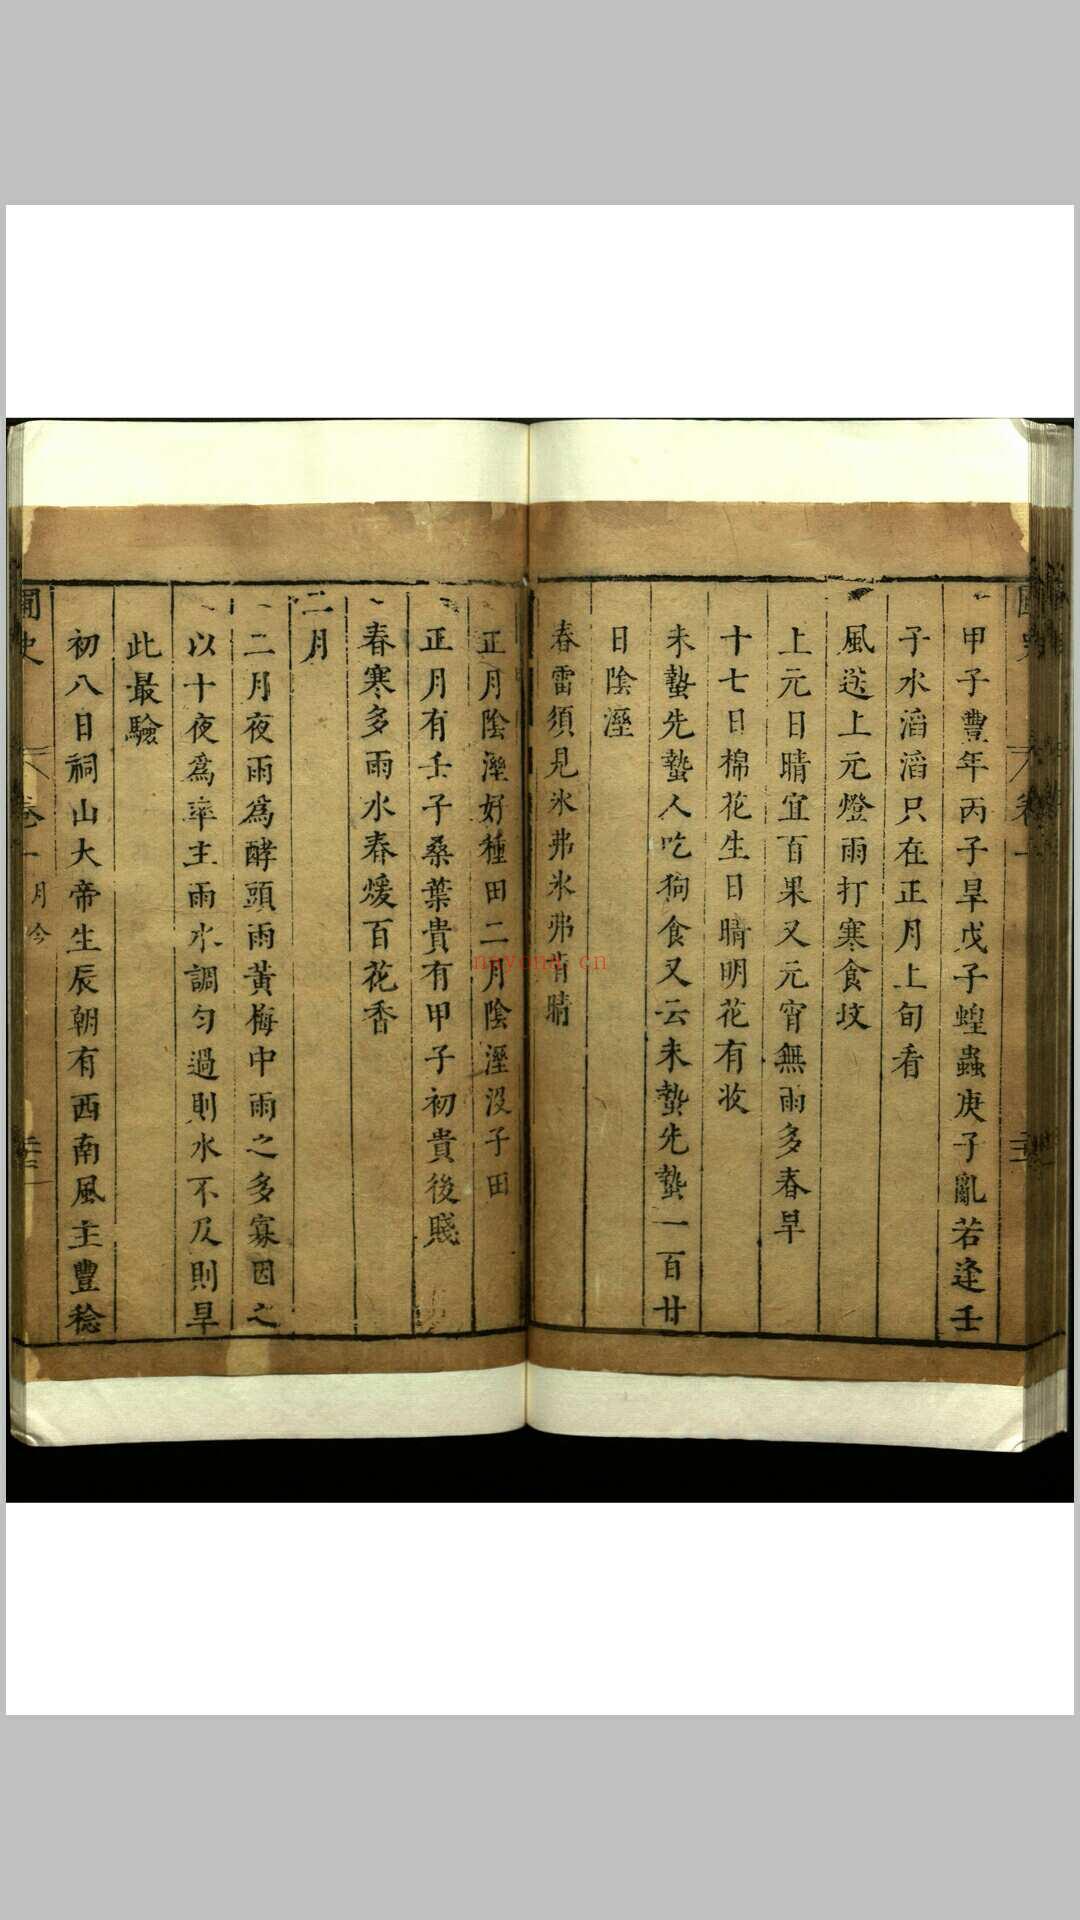 甲子豐年丙子旱戊子蝗蟲庚子亂若逢壬
子水滔滔只在正月上旬看
風送上元燈雨打寒食墳
上元日晴宜百果又元宵無雨多春旱
十七日棉花生日晴明花有收
未蟄先蟄人吃狗食又云未蟄先蟄一百廿
日陰溼
春雷須見氷弗氷弗肯晴
正月陰溼好種田二月陰溼沒子田
正月有壬子桑葉貴有甲子初貴後賤
春寒多雨水春煖百花香
二月
二月夜雨爲酵頭雨黃梅中雨之多寡因之
以十夜爲率主雨水調勻過則水不及則旱
此最驗
初八日祠山大帝生辰朝有西南風主豐稔
卷一
月令
nayona.cn